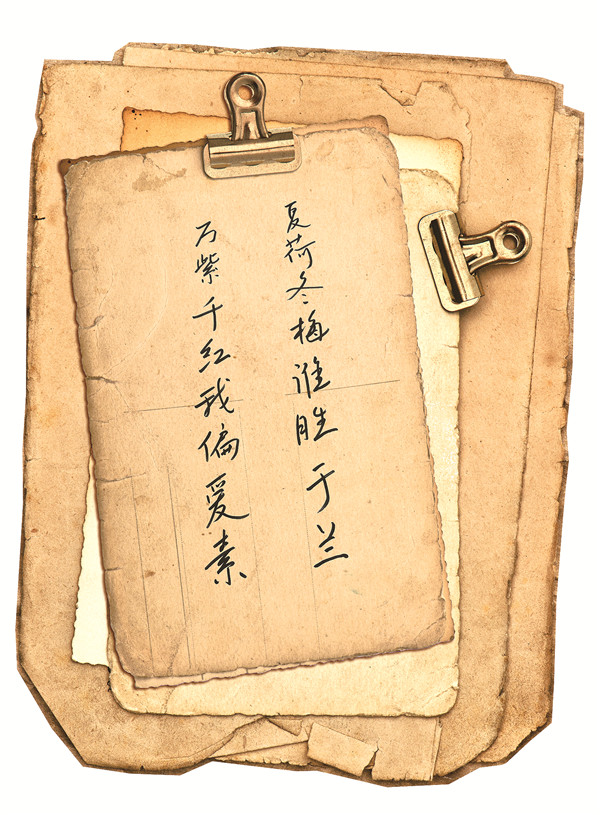 夏荷冬梅谁胜于兰
万紫千红我偏爱素